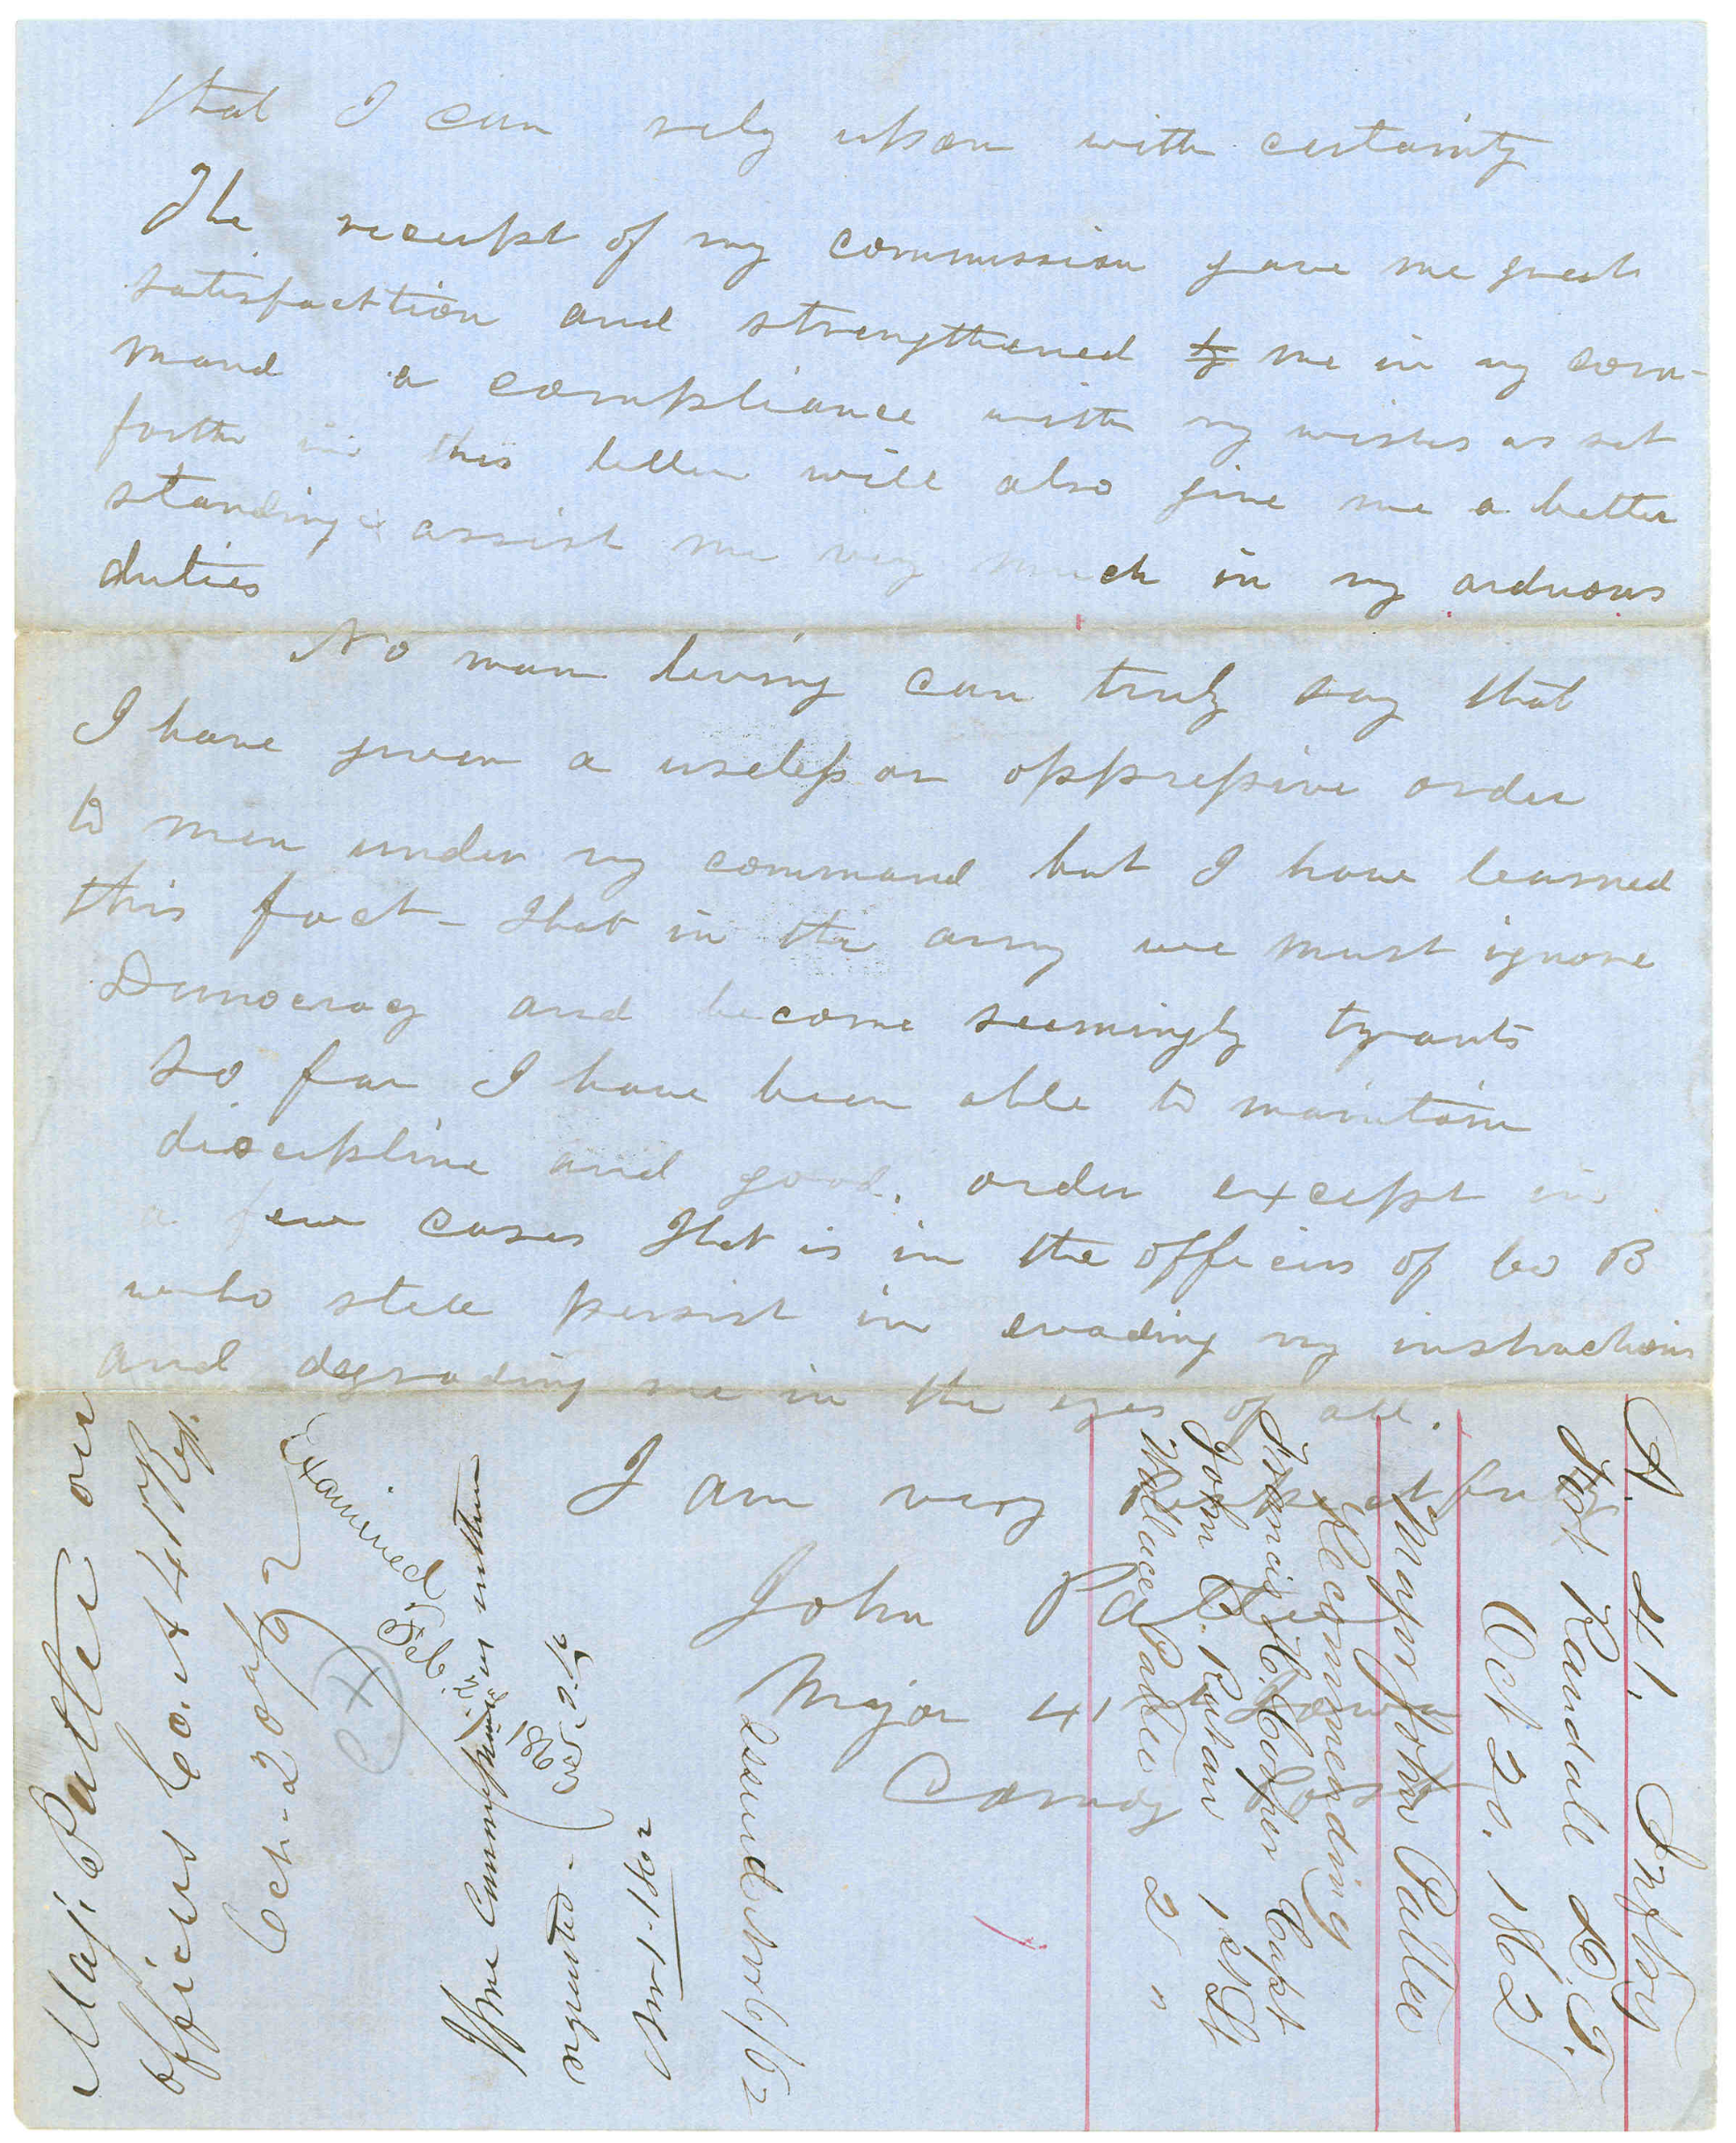 that I can rely upon with certainty
The receipt of my commission gave me great
satisfacttion and strengthened to me in my com-
mand a compliance with my wishes as set
forth in this letter will also give me a better
standing & assist me very much in my arduous
duties
No man living can truly say that
I have given a useless or oppressive order
to men under my command but I have learned
this fact - that in the army we must ignore
Democracy and become seemingly tyrants
So far I have been able to maintain
discipline and good order except in
a few cases That is in the officers of Co B
who still persist in evading my instructions
and degrading me in the eyes of all.
I am very respectfully
John Pattee
Major 41 Iowa
Comdg
A. 41. Inftry
Fort Randall D.T.
Oct 20. 1862
Major John Pattee
Recommending
Francis H. Cooper Capt
John C. Ruhan 1st Lt
Wallace Pattee 2 "
Issued Nov 6/62
If me Commissions written
requested -
Nov 1. 1862
Examined
Feb
Maj. Pattee on
officers Co. A 41 Reg.
Oct - 20 /62